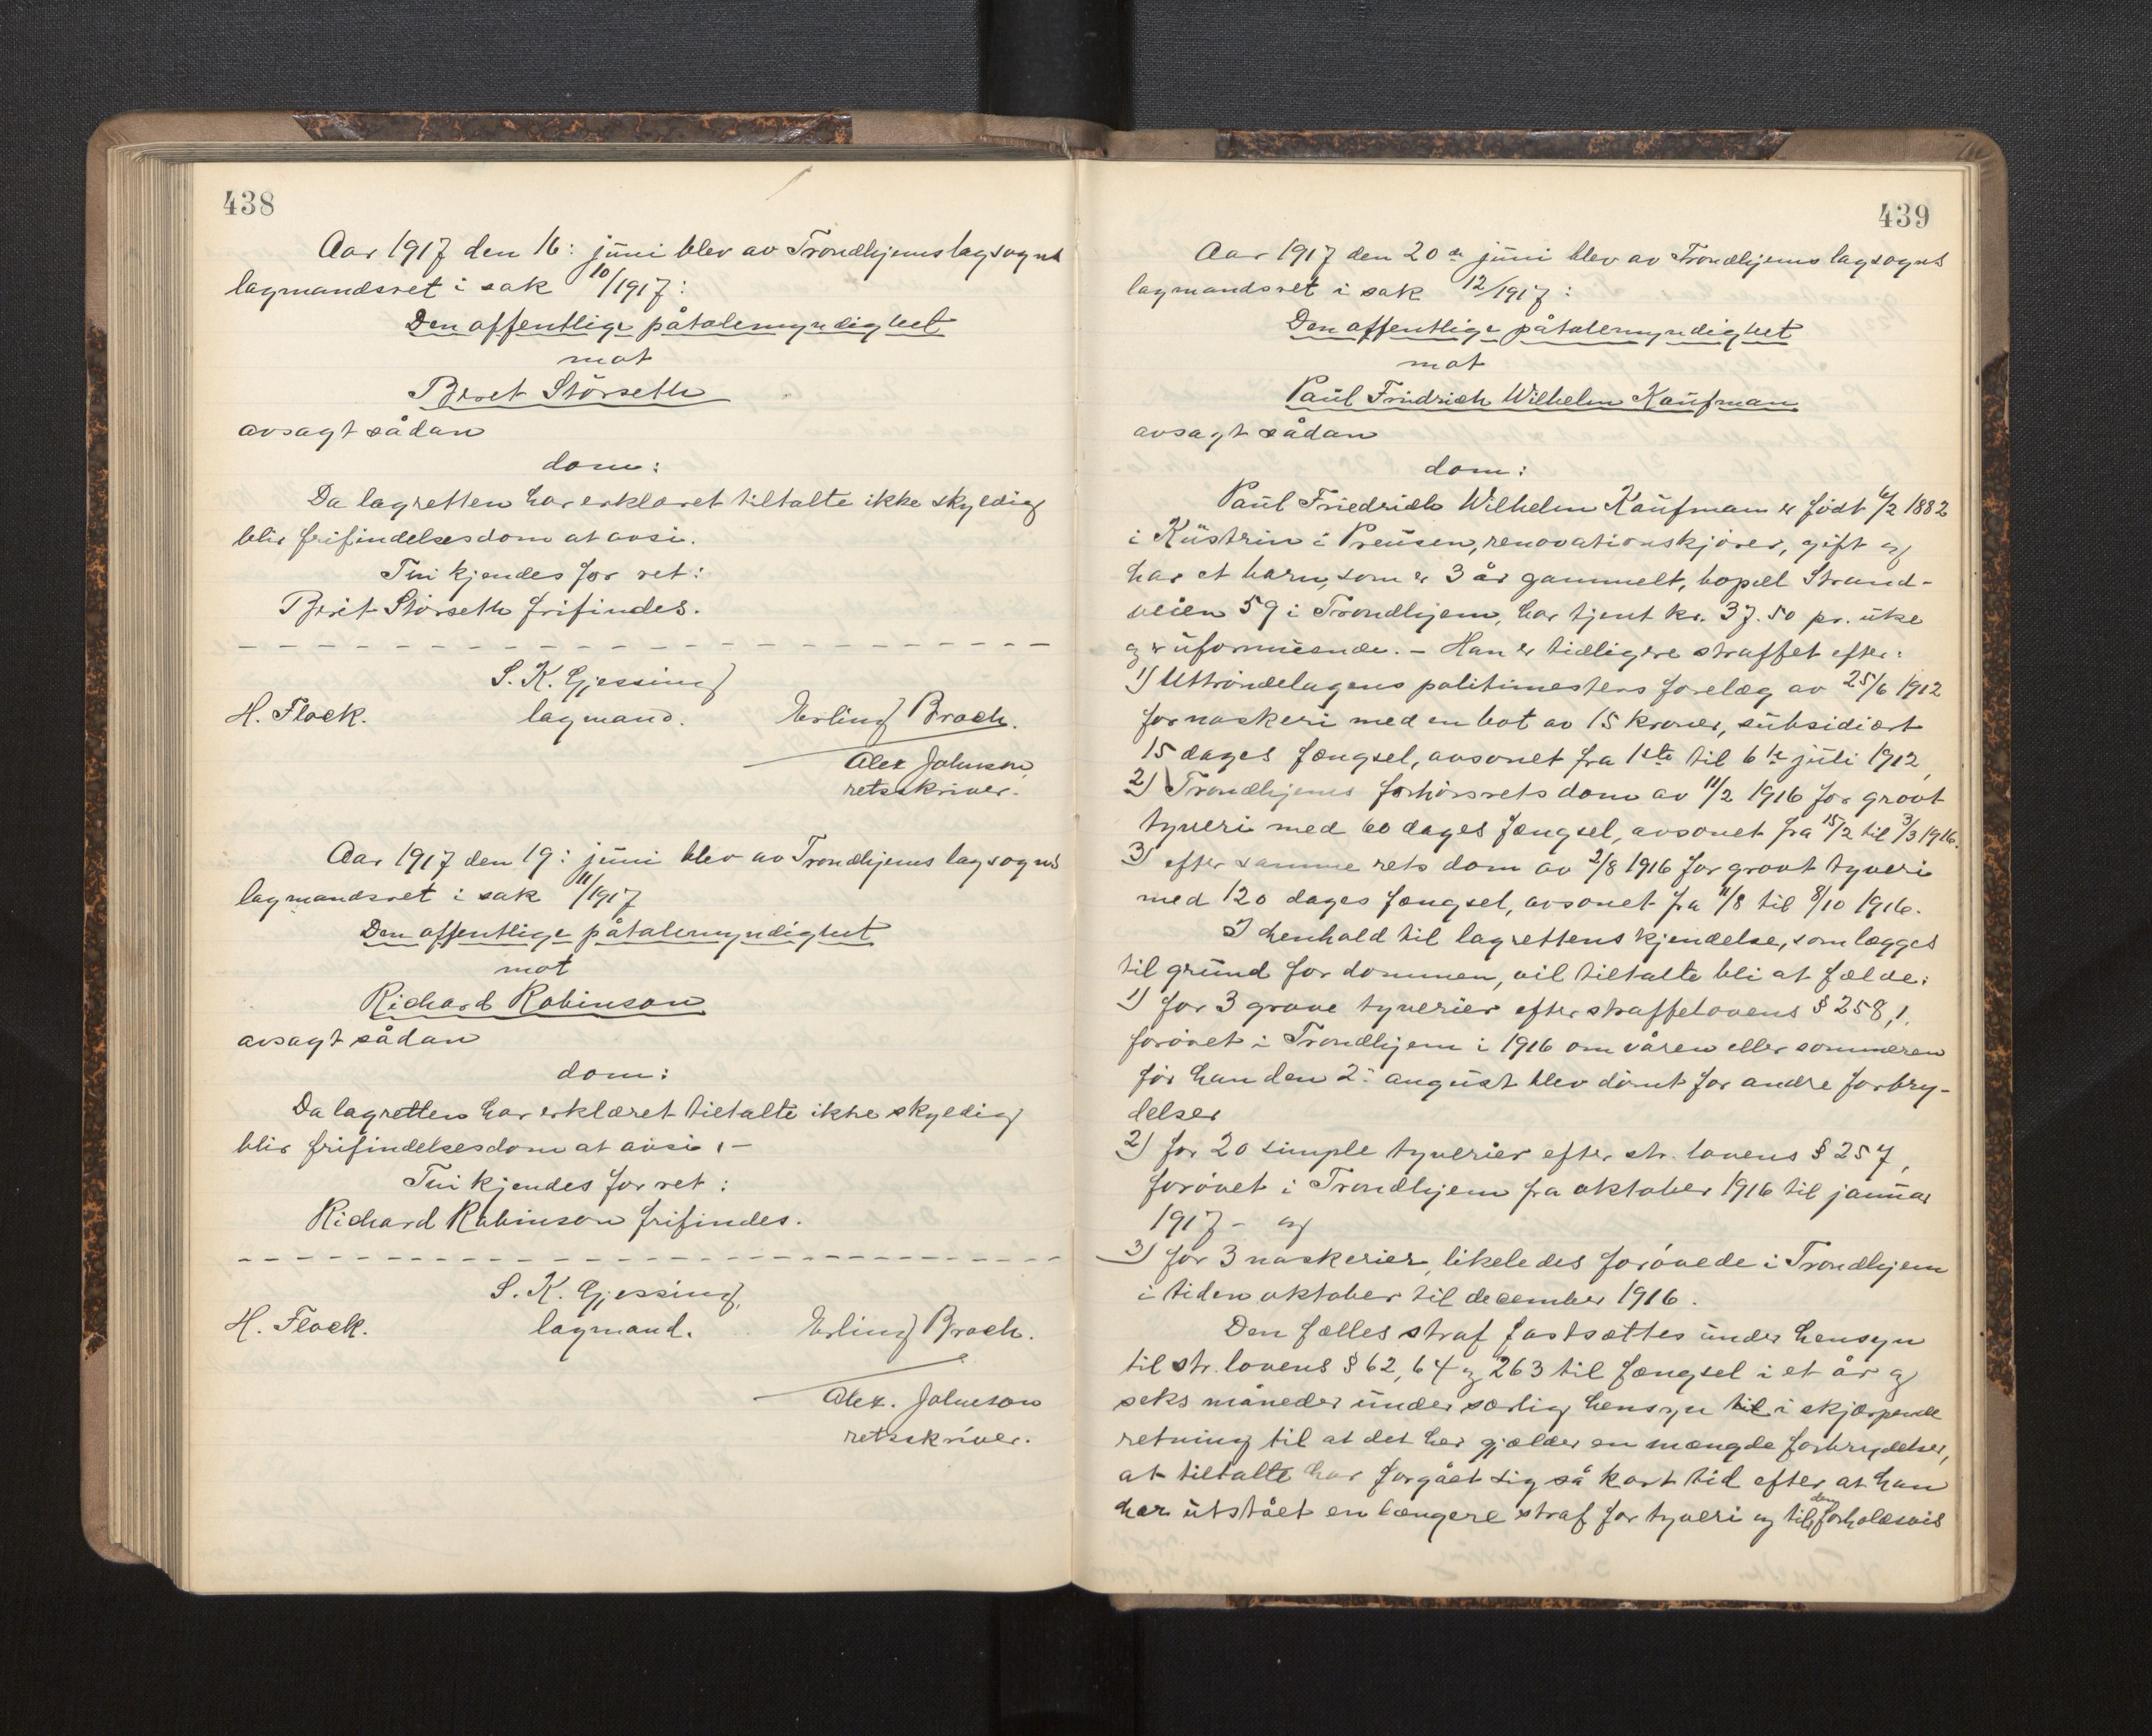 438
Aar 1917 den 16: juni blev av Trondhjems lagsogns
lagmandsret i sak 10/1917:
Den offentlige påtalemyndighet
mot
Beret Störseth
avsagt sådan
dom:
Da lagretten har erklæret tiltalte ikke skyldig
blir frifindelsesdom at avsi.
Ti kjendes for ret:
Berit Störseth frifindes.
S. K. Gjessing
H. Flock. lagmand. Erling Broch.
Alex Johnson,
retsskriver.
Aar 1917 den 19: juni blev av Trondhjems lagsogns
lagmandsret i sak 11/1917
Den offentlige påtalemyndighet
mot
Richard Robinson
avsagt sådan
dom:
Da lagretten har erklæret tiltalte ikke skyldig
blir frifindelsesdom at avsi. –
Ti kjendes for ret:
Richard Robinson frifindes.
S. K. Gjessing,
H. Flock. lagmand. Erling Broch.
Alex. Johnson
retsskriver.
439
Aar 1917 den 20de juni blev av Trondhjems lagsogns
lagmandsret i sak 12/1917:
Den offentlige påtalemyndighet
mot
Paul Friedrich Wilhelm Kaufman
avsagt sådan
dom:
Paul Friedrich Wilhelm Kaufman er født 6/2 1882
i Küstrin i Preusen, renovationskjører, gift og
har et barn, som er 3 år gammelt, bopæl Strand-
veien 59 i Trondhjem, har tjent kr. 37.50 pr. uke
og er uformuende. – Han er tidligere straffet efter:
1) Uttröndelagens politimesters forelæg av 25/6 1912
for naskeri med en bot av 15 kroner, subsidiært
15 dages fængsel, avsonet fra 1ste til 6te juli 1912,
2) Trondhjems forhörsrets dom av 11/2 1916 for grovt
tyveri med 60 dages fængsel, avsonet fra 15/2 til 3/3 1916.
3) efter samme rets dom av 2/8 1916 for grovt tyveri
med 120 dages fængsel, avsonet fra 11/8 til 8/10 1916.
I henhold til lagrettens kjendelse, som lægges
til grund for dommen, vil tiltalte bli at fælde:
1) for 3 grove tyverier efter straffelovens § 258, 1.
forövet i Trondhjem i 1916 om våren eller sommeren
før han den 2: august blev dömt for andre forbry-
delser
2) for 20 simple tyverier efter str. lovens § 257,
forövet i Trondhjem fra oktober 1916 til januar
1917 – og
3) for 3 naskerier, likeledes forövede i Trondhjem
i tiden oktober til december 1916.
Den fælles straf fastsættes under hensyn
til str. lovens § 62, 64 og 263 til fængsel i et år og
seks måneder under særlig hensyn til i skjærpende
retning til at det her gjælder en mængde forbrydelser,
at tiltalte har forgået sig så kort tid efter at han
har utstået en længere straf for tyveri og til den forholdsvis